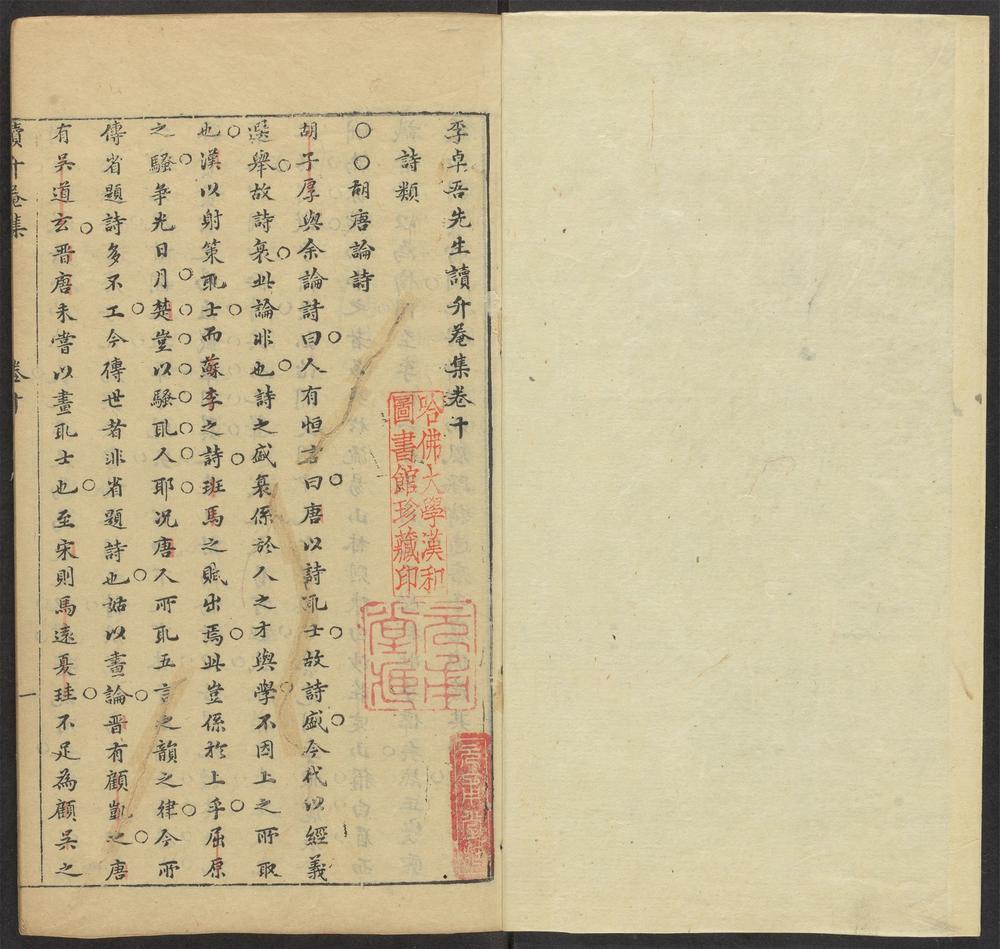 李卓吾先生讀升菴集卷十
詩類
○○胡唐論詩
胡子厚與余論詩曰人有恒言曰唐以詩取士故詩盛今代以經義
選舉故詩衰此論非也詩之盛衰係於人之才與學不因上之所取
也漢以射策取士而蘇李之詩班馬之賦出焉此豈係於上乎屈原
之騷爭光日月楚豈以騷取人耶况唐人所取五言之韻之律今所
傳省題詩多不工今傳世者非省題詩也姑以畫論晋有顧凱之唐
有吴道玄晋唐未嘗以畫取士也至宋則馬遠夏珪不足為顧吴之
讀升菴集
卷十
一
哈佛大學漢和
圖書館珍藏印